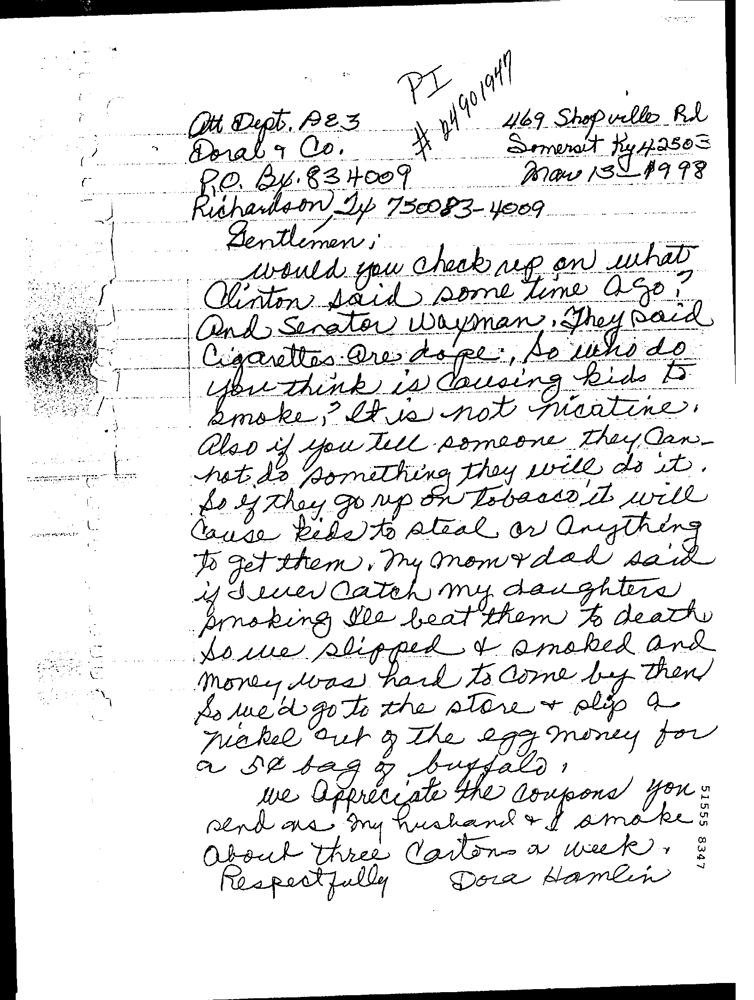 PI
# 24901947
Att Dept. A23
Doral & Co.
P.O. Bx. 834009
Richardson, Tx 750083-4009
469 Shopville Rd
Somerset Ky 42503
Mar 13 1998
Gentlemen;
would you check up on what
Clinton said some time ago?
And Senator Wayman. They said
Cigarettes are dope, So who do
you think is causing kids to
smoke? It is not nicatine.
Also if you tell someone they Can-
not do something they will do it.
So if they go up on tobacco it will
Cause kids to steal or anything
to get them. My mom & dad said
if I ever catch my daughters
smoking Ile beat them to death
So we slipped & smoked and
money was hard to come by then
So we'd go to the store & slip a
nickel out of the egg money for
a 5¢ bag of buffalo.
We appreciate the coupons you
send us my husband & I smoke
about three Cartons a week.
Respectfully Dora Hamlin
51555 8347